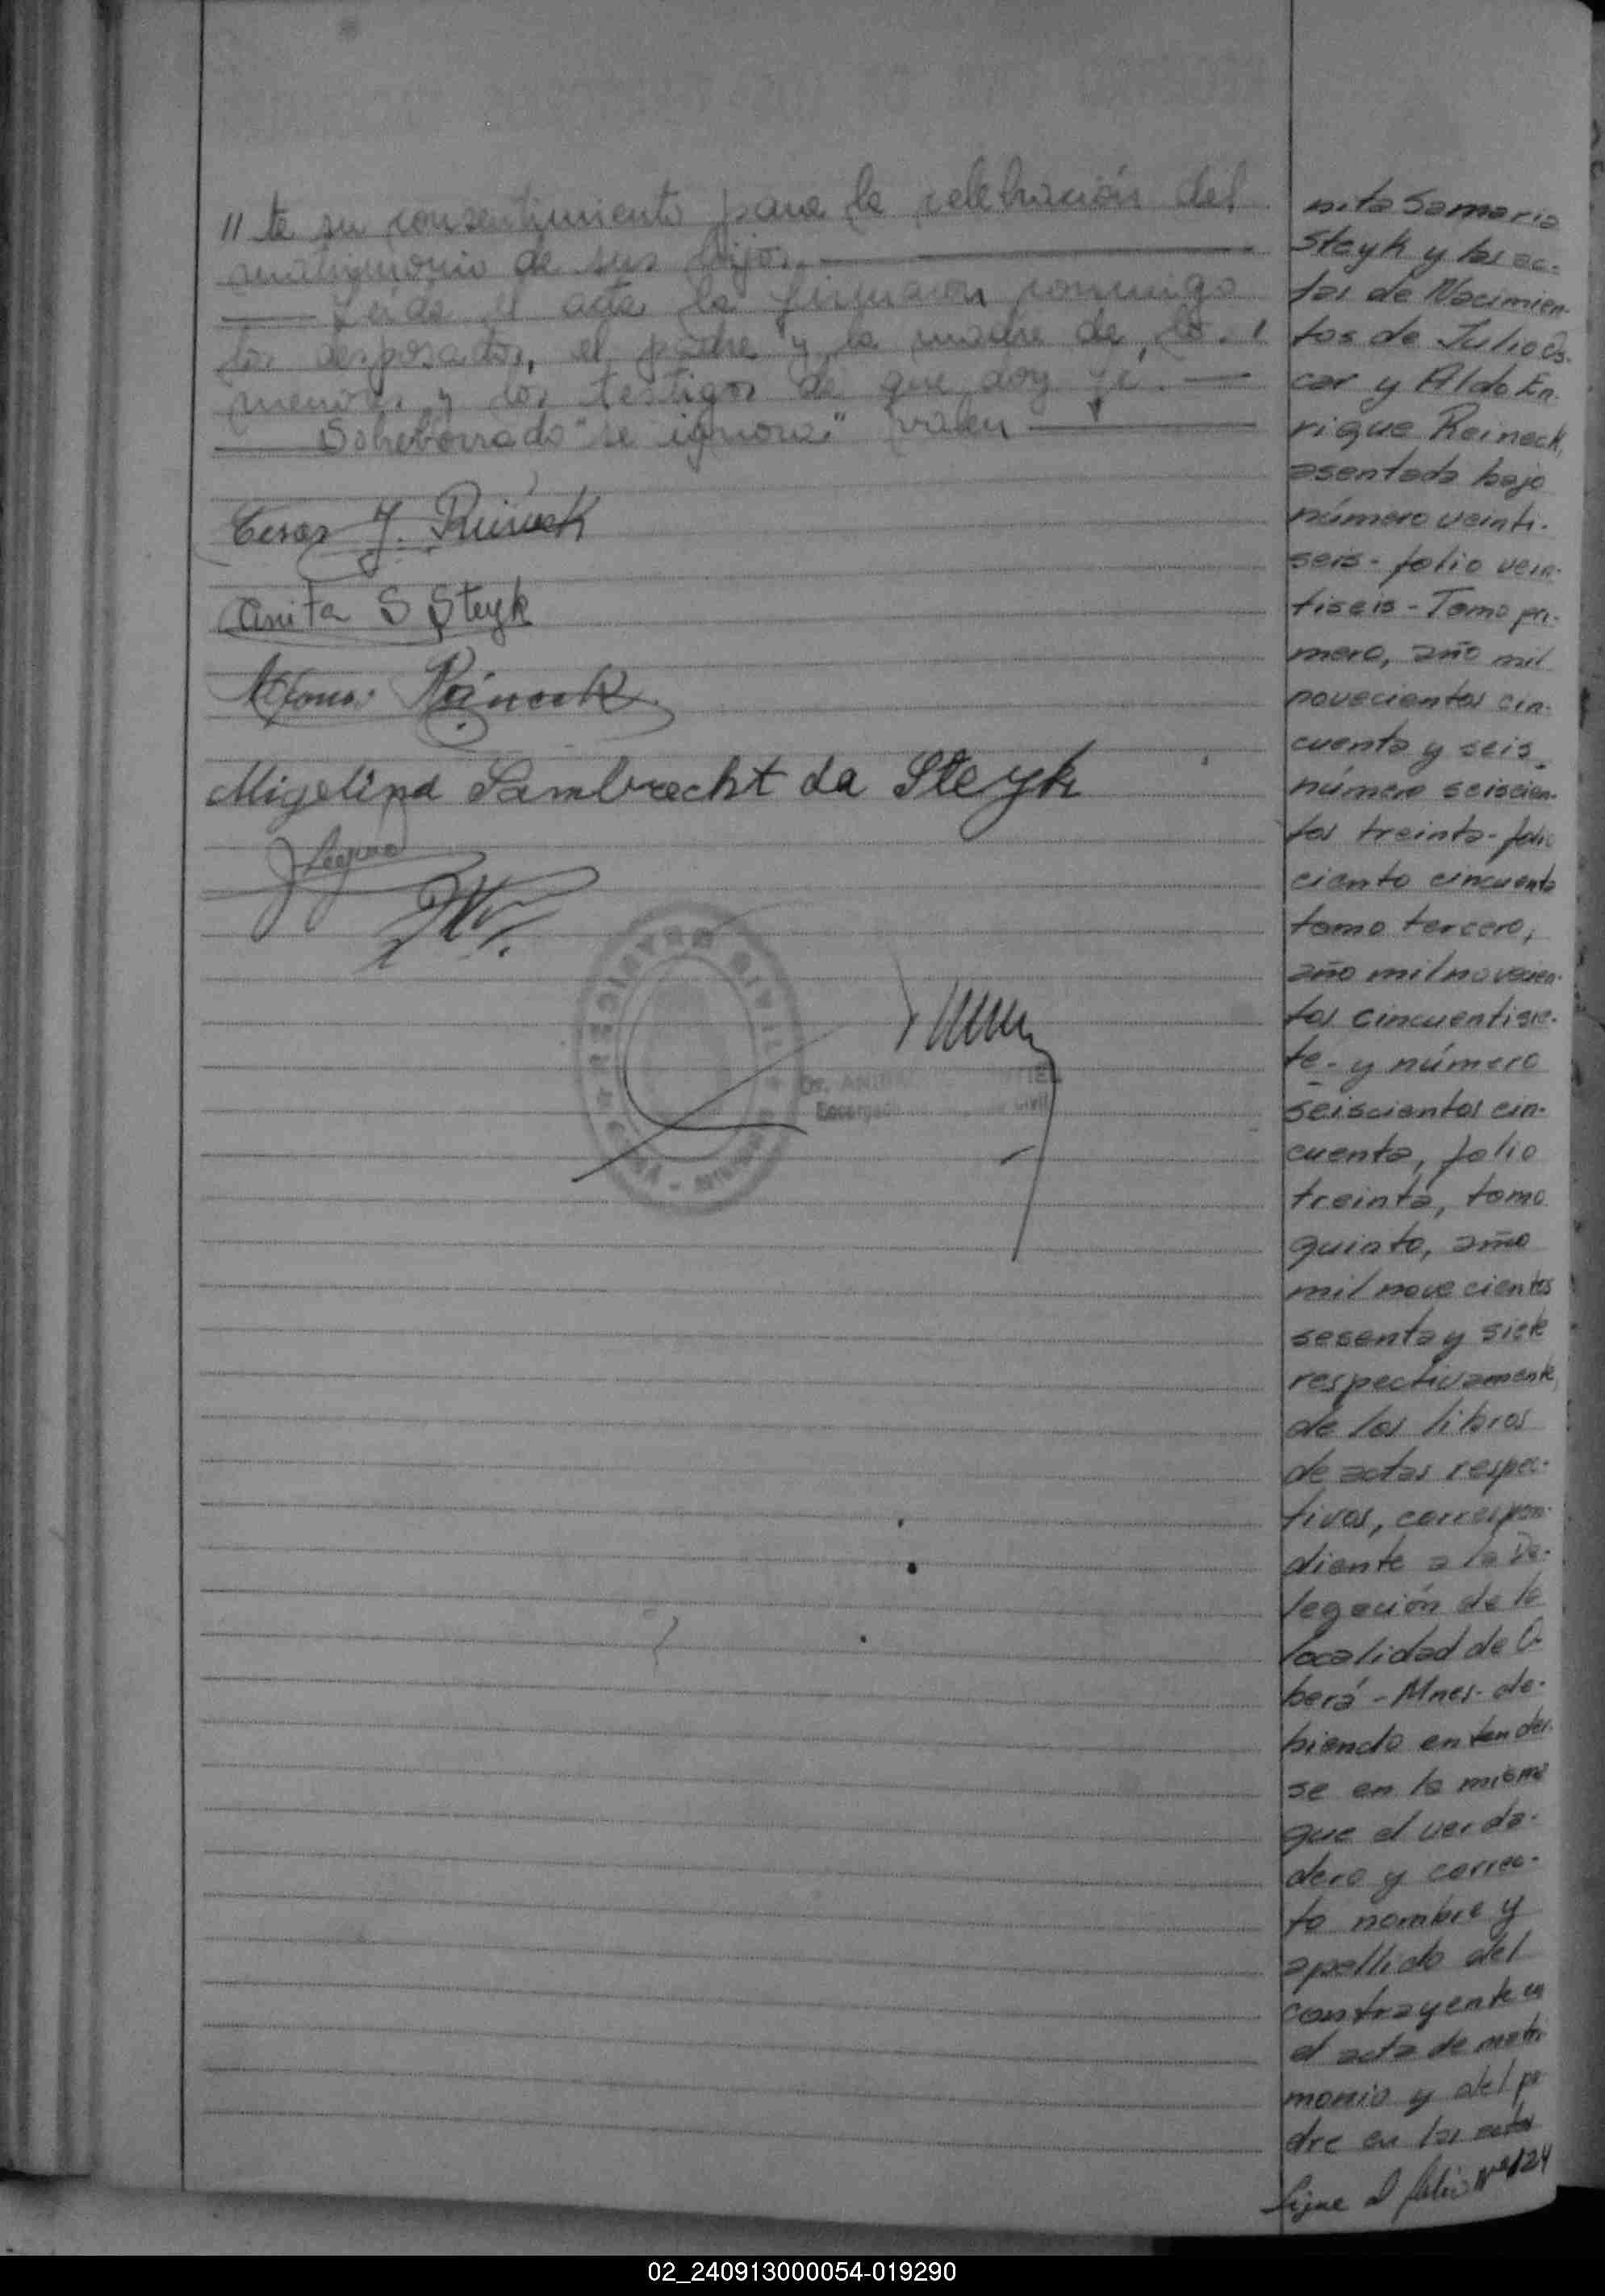 // te su consentimiento para la celebración del
matrimonio de sus hijos.
Leída el acta la firmaron conmigo
los desposados, el padre y la madre de los
menores y los testigos de que doy fé.
Sobreborrado "se ignora" valen
Cesar J. Reineck
Anita S Steyk
Alfonso Reineck
Migelina Lambrecht da Steyk
REGISTRO CIVIL
Dr.
Encargado Civil
nita Samaria
Steyk y las ac-
tas de Nacimien-
tos de Julio Os-
car y Aldo En-
rique Reineck,
asentada bajo
número veinti-
seis - folio vein-
tiseis - Tomo pri-
mero, año mil
novecientos cin-
cuenta y seis
número seiscien-
tos treinta - folio
ciento cincuenta
tomo tercero,
año mil novecien-
tos cincuentisie-
te - y número
seiscientos cin-
cuenta, folio
treinta, tomo
quinto, año
mil novecientos
sesenta y siete
respectivamente,
de los libros
de actas respec-
tivos, correspon-
diente a la De-
legación de la
localidad de O-
berá - Mnes - de-
biendo entender-
se en la misma
que el verda-
dero y correc-
to nombre y
apellido del
contrayente en
el acta de matri
monio y del pa
dre en las actas
Sigue al folio Nº 124
02_240913000054-019290